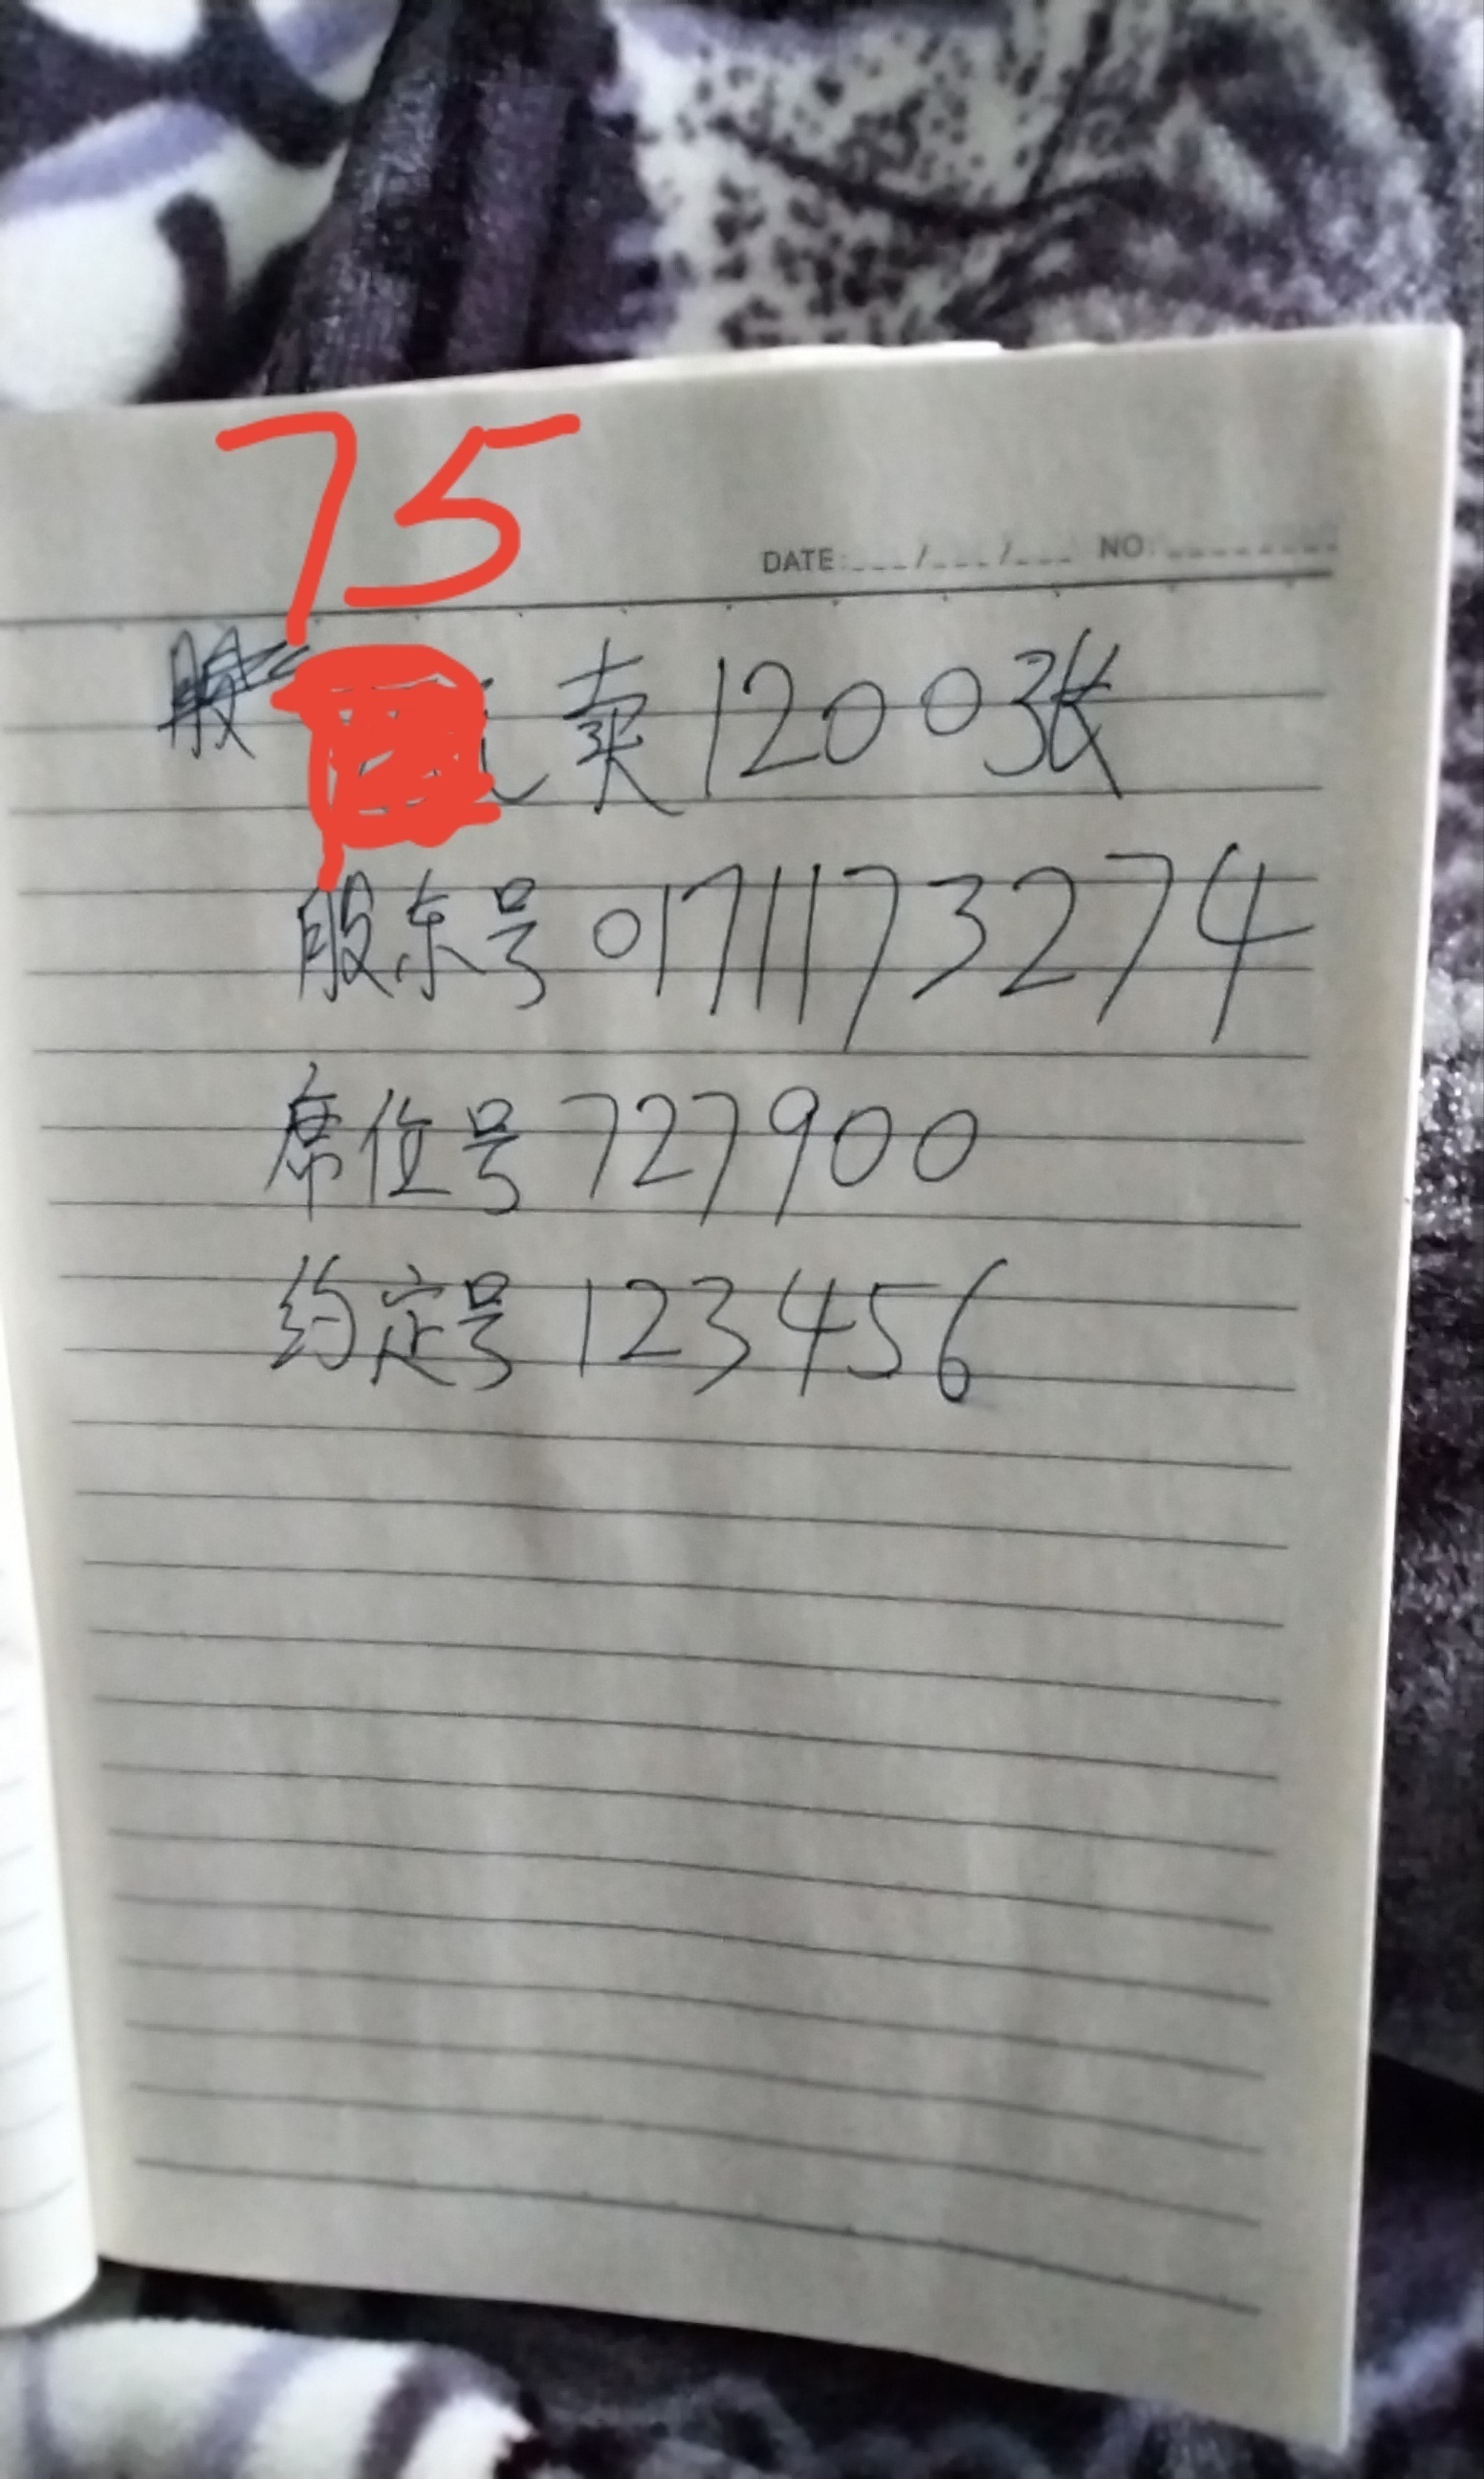 75
DATE: / / NO:
卖1200张
股东号0171173274
席位号727900
约定号123456